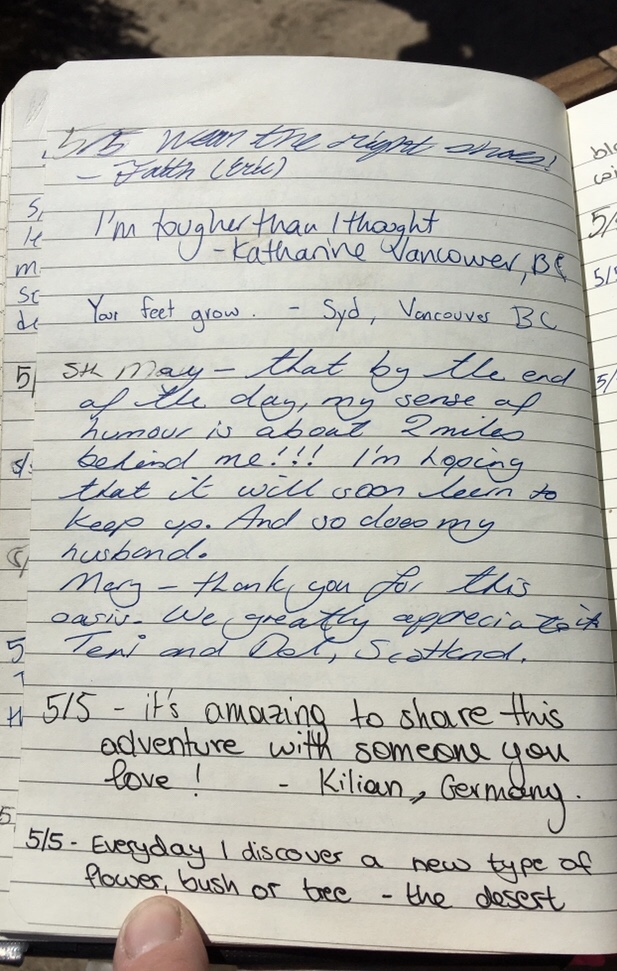 5/5 Wear the right shoes!
- Faith (Eric)
I'm tougher than I thought
-Katharine Vancouver, BC
Your feet grow. - Syd, Vancouver BC
5th May - that by the end
of the day, my sense of
humour is about 2 miles
behind me!!! I'm hoping
that it will soon learn to
keep up. And so does my
husband.
Mary - thank you for this
oasis. We greatly appreciate it
Teni and Dot, Scotland.
5/5 - it's amazing to share this
adventure with someone you
love! - Kilian, Germany.
5/5 - Everyday I discover a new type of
flower, bush or tree - the desert